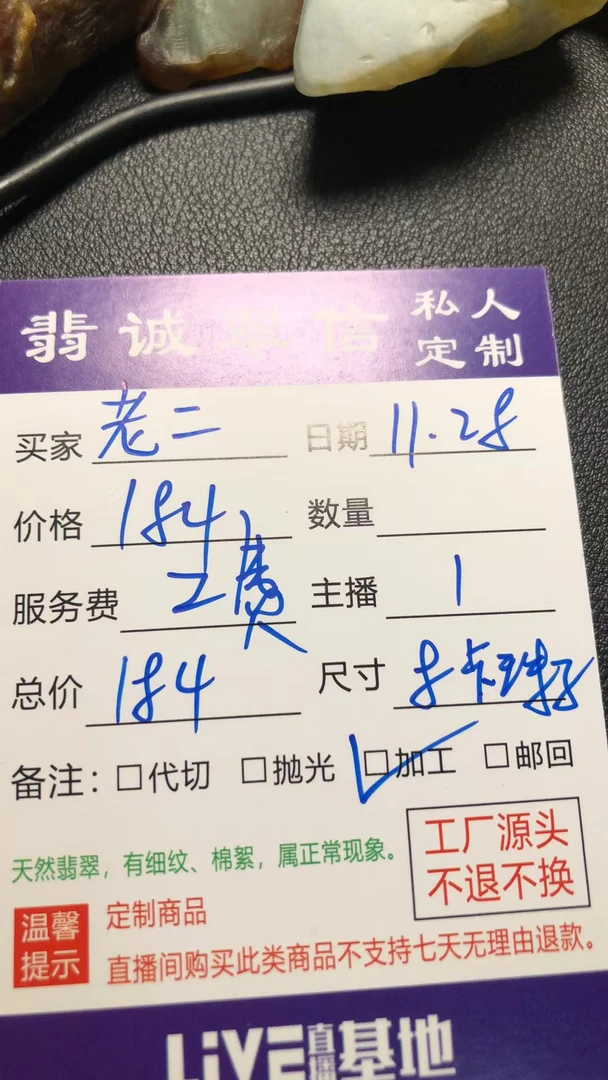 翡诚翠信 私人定制
买家 老二 日期 11.28
价格 184 数量
服务费 工费 主播 1
总价 184 尺寸 8卡珠子
备注：□代切 □抛光 □加工 □邮回
天然翡翠，有细纹、棉絮，属正常现象。
工厂源头
不退不换
温馨提示
定制商品
直播间购买此类商品不支持七天无理由退款。
LiVE直播基地